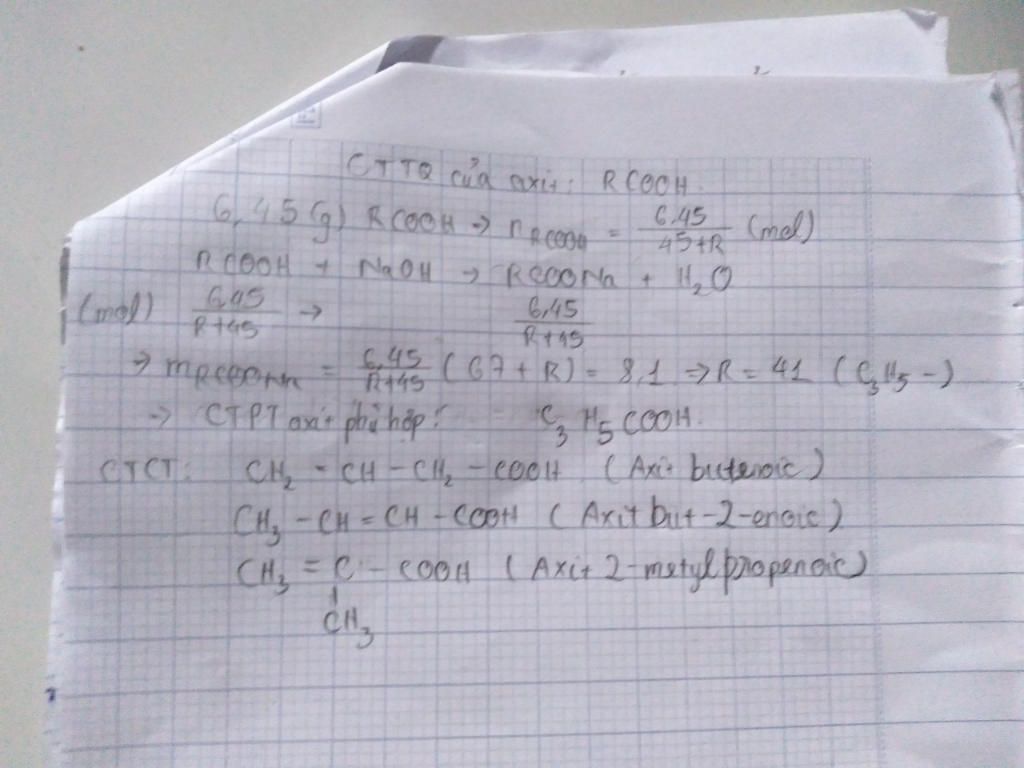 CTTQ của axit: RCOOH.
6,45(g) RCOOH → nRCOOH = 6,45/45+R (mol)
RCOOH + NaOH → RCOONa + H₂O
(mol) 6,45/R+45 → 6,45/R+45
→ mRCOONa = 6,45/R+45 (67+R) = 8,1 → R = 41 (C₃H₅-)
→ CTPT axit phù hợp: C₃H₅COOH.
CTCT: CH₂ - CH - CH₂ - COOH (Axit butenoic)
CH₃ - CH = CH - COOH (Axit but-2-enoic)
CH₃ = C - COOH (Axit 2-metylpropenoic)
CH₃